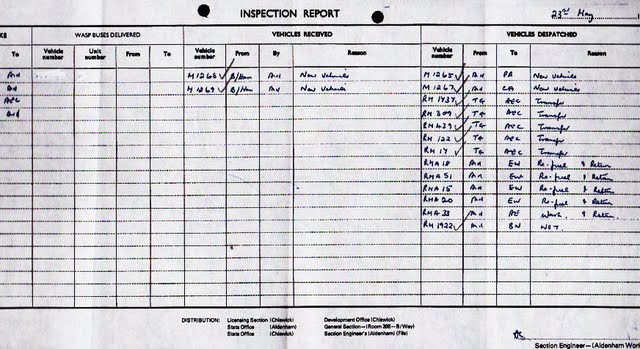 INSPECTION REPORT 23rd May
KE WASP BUSES DELIVERED VEHICLES RECEIVED VEHICLES DESPATCHED
To Vehicle number Unit number From To Vehicle number From By Reason Vehicle number From To Reason
M1268 B/Ham New Vehicles M1265 PR New Vehicle
M1269 B/Ham New Vehicles M1267 CA New Vehicle
AEC RM 1737 TG AEC Transfer
RM 309 TG AEC Transfer
RM 639 TG AEC Transfer
RM 122 TG AEC Transfer
RM 17 TG AEC Transfer
RMA 18 EW Re-fuel & Return
RMA 51 EW Re-fuel & Return
RMA 15 EW Re-fuel & Return
RMA 20 EW Re-fuel & Return
RMA 33 AE Wash & Return
RM 1922 BN
DISTRIBUTION: Licensing Section (Chiswick) Development Office (Chiswick)
Stats Office (Aldenham) General Section—(Room 395—B/Way)
Stats Office (Chiswick) Section Engineer's (Aldenham) (File)
Section Engineer—(Aldenham Wor